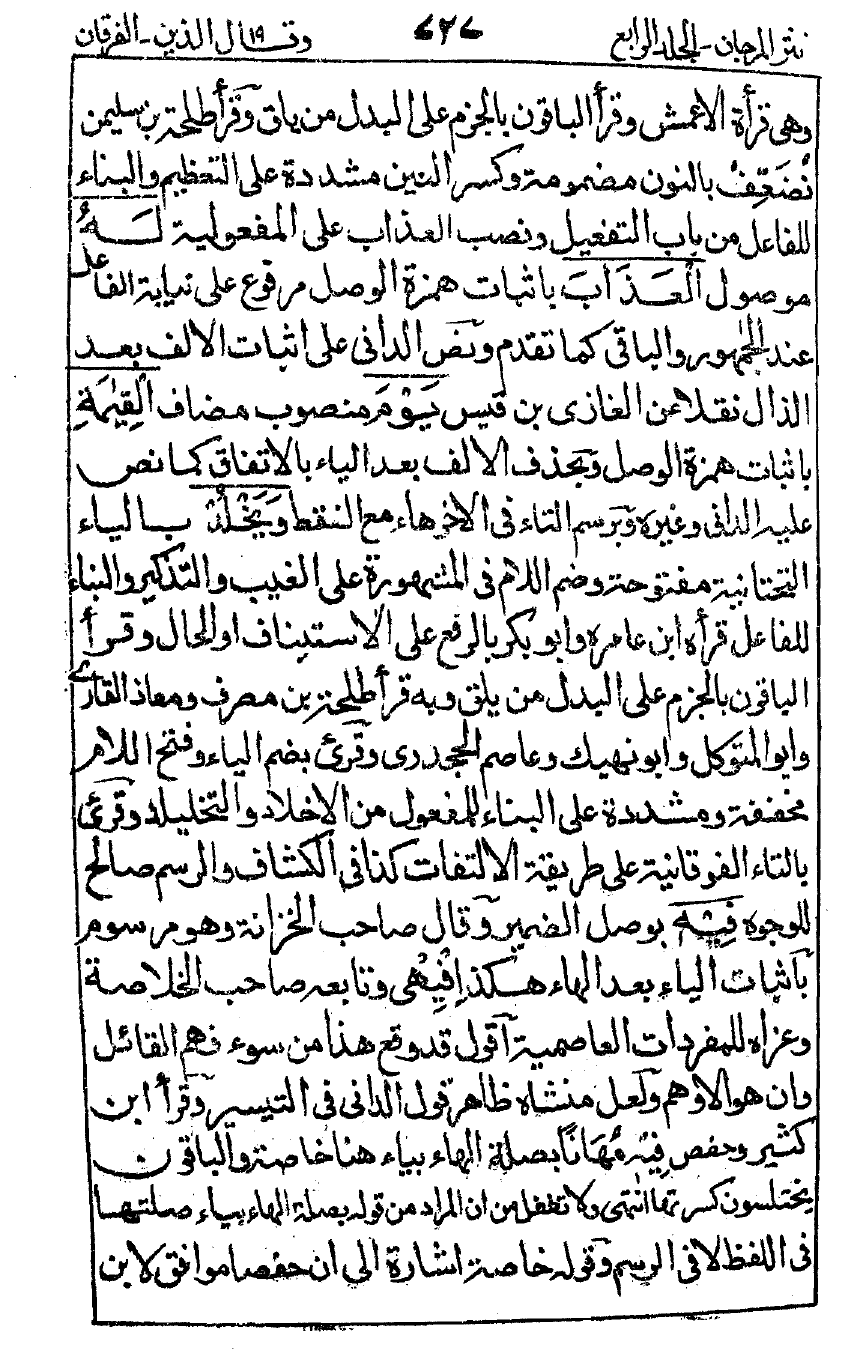 نثر المرجان - الجلد الرابع ٧٢٧ وقال الذين ١٩ - الفرقان
وهى قرأة الاعمش وقرأ الباقون بالجزم على البدل من يلق وقرأ طلحة بن سليمن
نُضَعِّفْ بالنون مضمومة وكسر العين مشددة على التعظيم والبناء
للفاعل من باب التفعيل ونصب العذاب على المفعولية لَهُ
موصول الْعَذَابَ باثبات همزة الوصل مرفوع على نيابة الفاعل
عند الجمهور والباقى كما تقدم ونص الدانى على اثبات الالف بعد
الذال نقلا عن الغازى بن قيس يَوْمَ منصوب مضاف الْقِيٰمَةِ
باثبات همزة الوصل وبحذف الالف بعد الياء بالاتفاق كما نص
عليه الدانى وغيره وبرسم التاء فى الاخر هاء مع النقط وَيَخْلُدْ بالياء
التحتانية مفتوحة وضم اللام فى المشهورة على الغيب والتذكير والبناء
للفاعل قرأه ابن عامر وابو بكر بالرفع على الاستيناف او الحال وقرأ
الباقون بالجزم على البدل من يلق وبه قرأ طلحة بن مصرف ومعاذ القارئ
وابو المتوكل وابو نهيك وعاصم الجحدرى وقرئ بضم الياء وفتح اللام
مخففة ومشددة على البناء للمفعول من الاخلاد والتخليد وقرئ
بالتاء الفوقانية على طريقة الالتفات كذا فى الكشاف والرسم صالح
للوجوه فِيْهِ بوصل الضمير وقال صاحب الخزانة وهو مرسوم
باثبات الياء بعد الهاء هكذا فِيْهِى وتابعه صاحب الخلاصة
وعزاه للمفردات العاصمية اقول قد وقع هذا من سوء فهم القائل
وان هو الا وهم ولعل منشاه ظاهر قول الدانى فى التيسير وقرأ ابن
كثير وحفص فِيْهِ مُهَانًا بصلة الهاء بياء هنا خاصة والباقون
يختلسون كسرتها انتهى ولا تغفل من ان المراد من قوله بصلة الهاء بياء صلتها
فى اللفظ لا فى الرسم وقوله خاصة اشارة الى ان حفصا موافق لابن